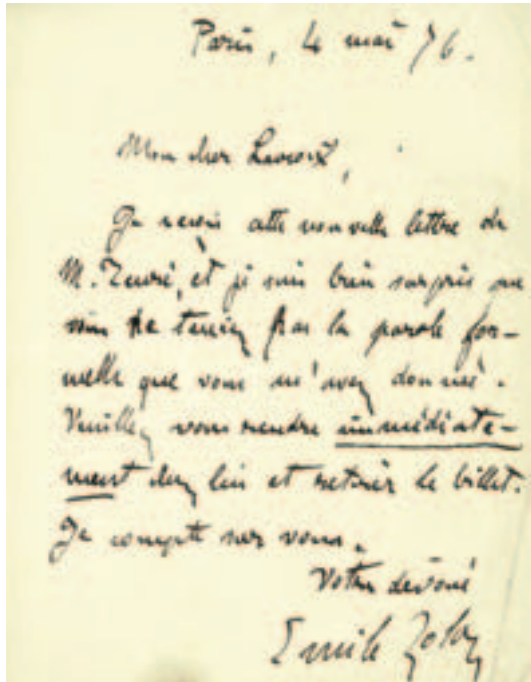 Paris, 4 mai 76.
Mon cher Lacroix,
Je reçois cette nouvelle lettre de
M. et je suis bien surpris que
vous ne teniez pas la parole for-
melle que vous m'avez donnée.
Veuillez vous rendre immédiate-
ment chez lui et retirer le billet.
Je compte sur vous.
Votre dévoué
Emile Zola